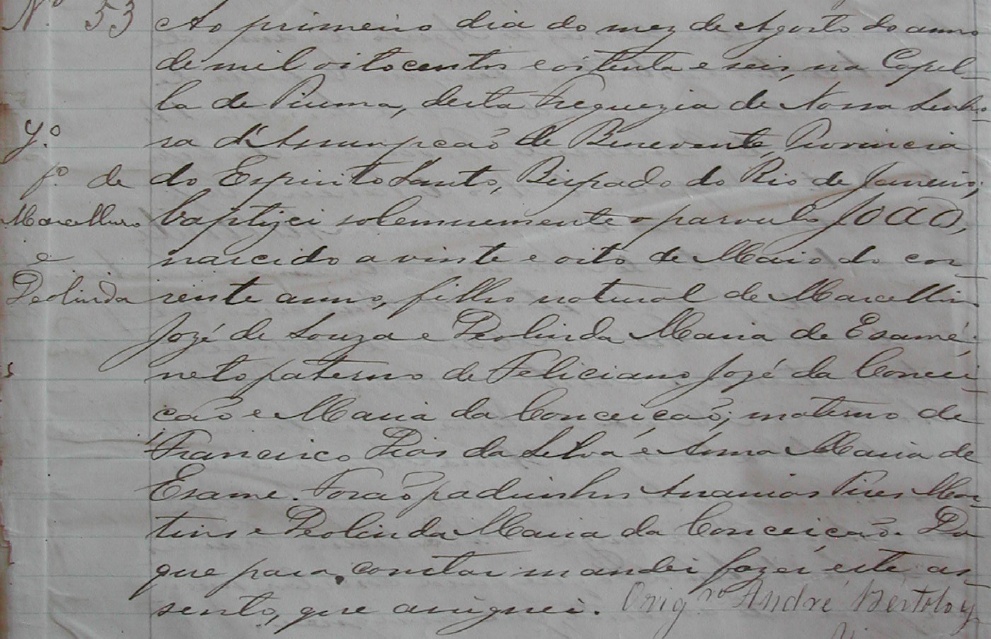 Nº 53
Ao primeiro dia do mez de Agosto do anno
de mil oitocentos e oitenta e seis, na Capel-
la de Piuma, desta Freguezia de Nossa Senho-
ra d'Assumpcão de Benevente, Provincia
do Espirito Santo, Bispado do Rio de Janeiro,
baptizei solemnemente o parvulo João,
nascido a vinte e oito de Maio do cor-
rente anno, filho natural de Marcellino
José de Souza e Deolinda Maria de Esamé:
neto paterno de Feliciano José da Concei-
cão e Maria da Conceicão; materno de
Francisco Dias da Silva e Anna Maria de
Esame. Forão padrinhos Ananias Pires Mar-
tins e Deolinda Maria da Conceicão. Do
que para constar mandei fazer este as-
sento, que assignei. Orig André Bertolo
Jº
fº de
Marcellino
e
Deolinda